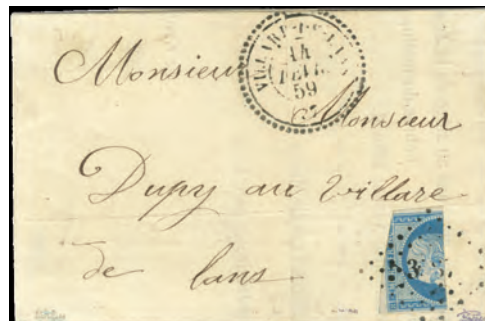 VILLARD-DE-LANS
14
FEVR.
59
Monsieur
Monsieur
Dupy au villare
de lans